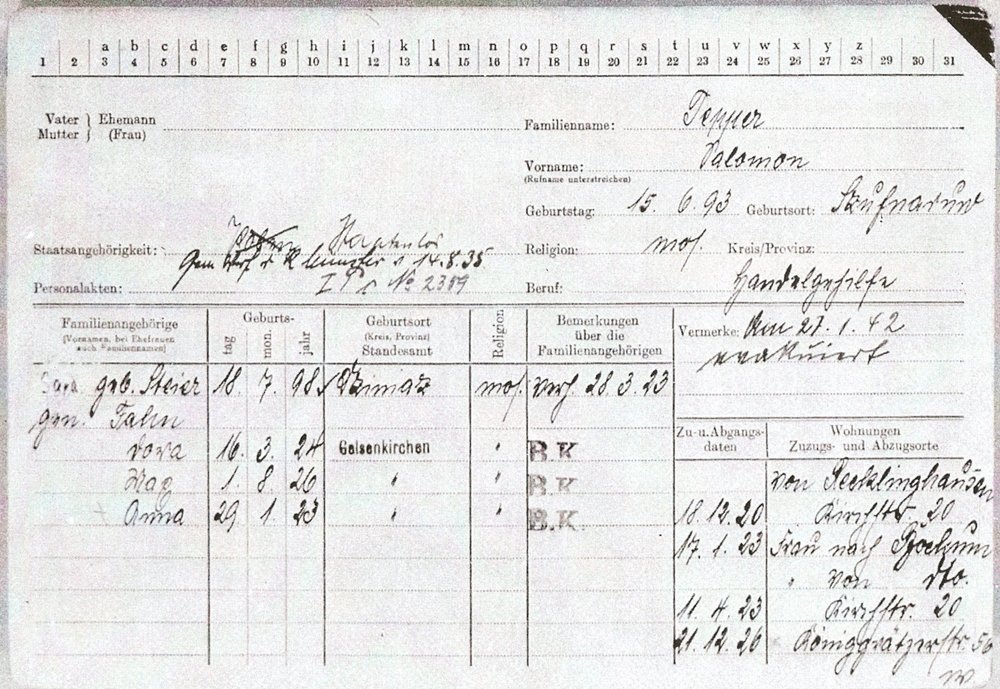 a b c d e f g h i j k l m n o p q r s t u v w x y z
1 2 3 4 5 6 7 8 9 10 11 12 13 14 15 16 17 18 19 20 21 22 23 24 25 26 27 28 29 30 31
Vater } Ehemann
Mutter } (Frau)
Familienname: Tepper
Vorname: Salomon
(Rufname unterstreichen)
Geburtstag: 15. 6. 93 Geburtsort: Skufnarud
Staatsangehörigkeit: Polen Staatenlos
v. 14.8.35
Religion: mos. Kreis/Provinz:
Personalakten: No 2359
Beruf: Handelgehilfe
Familienangehörige
(Vornamen, bei Ehefrauen
auch Familiennamen)
Geburts-
tag mon. jahr
Geburtsort
(Kreis, Provinz)
Standesamt
Religion
Bemerkungen
über die
Familienangehörigen
Vermerke: Am 27. 1. 42
evakuiert
Sara geb. Steier 18 7. 98 mos. verh. 28. 3. 23
gen. Fahn
Dora 16. 3. 24 Gelsenkirchen " B.K.
Max 1. 8 26 " " B.K.
Anna 29 1. 23 " " B.K.
Zu- u. Abgangs-
daten
Wohnungen
Zuzugs- und Abzugsorte
von Recklinghausen
18. 12. 20 Kirchstr. 20
17. 1. 23 Frau nach Bochum
" von dto.
11. 4. 23 Kirchstr. 20
21. 12. 26 Königgrätzerstr. 56
W.